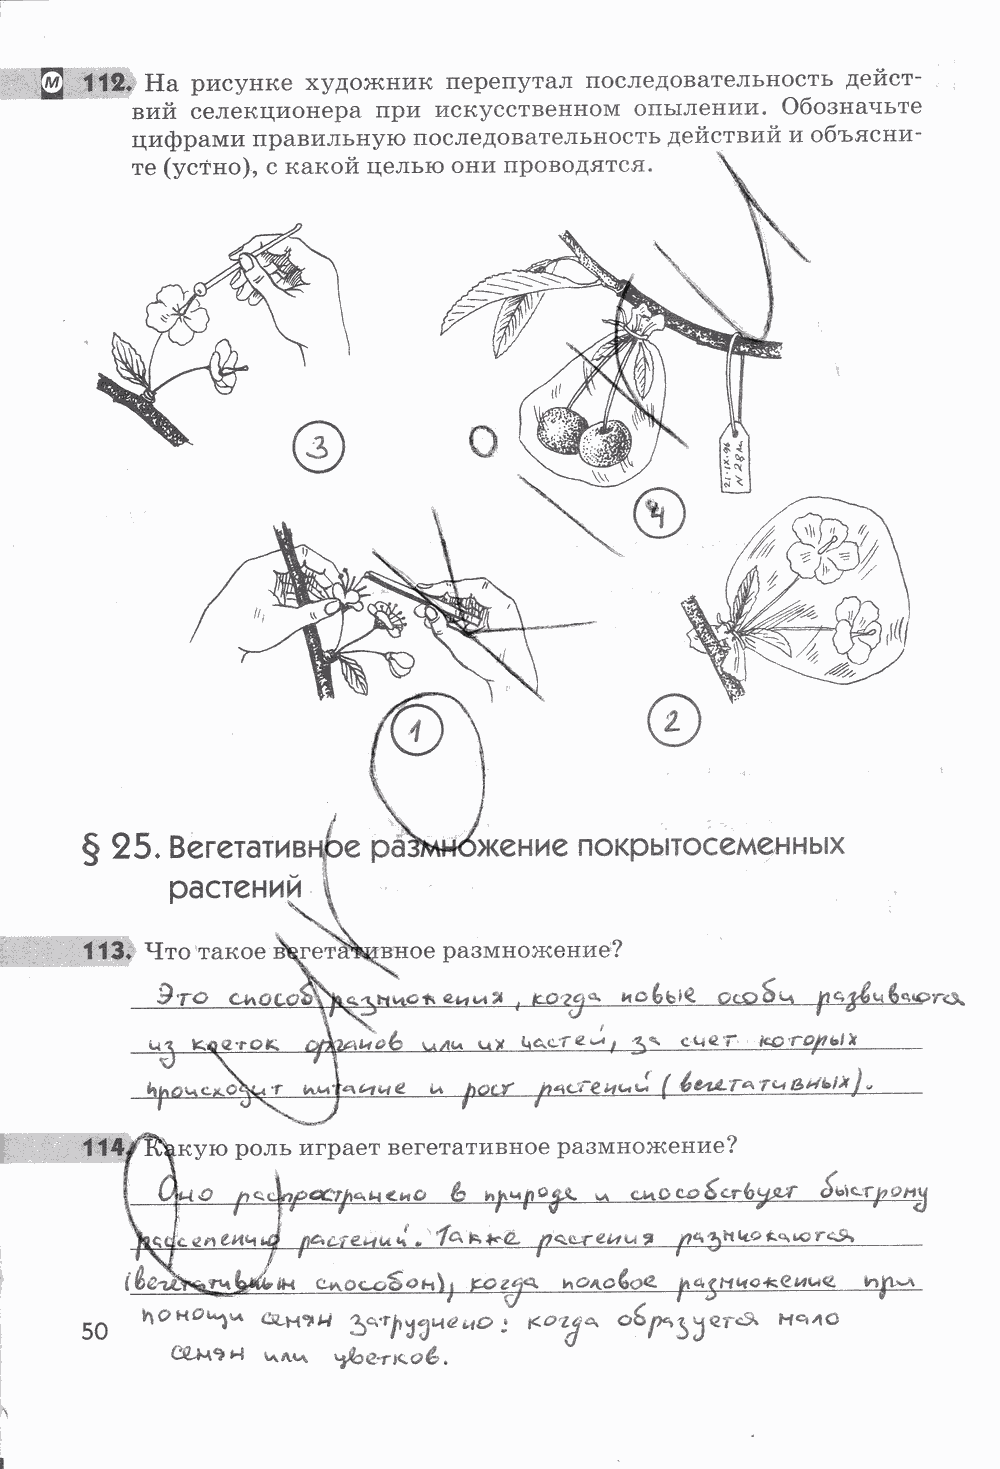 М 112. На рисунке художник перепутал последовательность дейст-
вий селекционера при искусственном опылении. Обозначьте
цифрами правильную последовательность действий и объясни-
те (устно), с какой целью они проводятся.
3
21.IX.96
N 28
4
1
2
§ 25. Вегетативное размножение покрытосеменных
растений
113. Что такое вегетативное размножение?
Это способ размножения, когда новые особи развиваются
из клеток органов или их частей, за счет которых
происходит питание и рост растений (вегетативных).
114. Какую роль играет вегетативное размножение?
Оно распространено в природе и способствует быстрому
расселению растений. Также растения размножаются
(вегетативным способом), когда половое размножение при
помощи семян затруднено: когда образуется мало
семян или цветков.
50